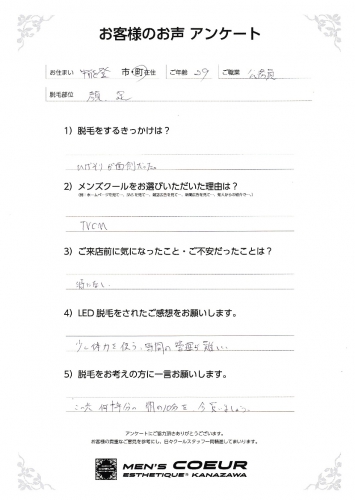 お客様のお声 アンケート
お住まい 中能登 市・町在住 ご年齢 29 ご職業 公務員
脱毛部位 顔、足
1）脱毛をするきっかけは？
ひげそりが面倒だった。
2）メンズクールをお選びいただいた理由は？
TVCM
3）ご来店前に気になったこと・ご不安だったことは？
特になし
4）LED脱毛をされたご感想をお願いします。
少し体力を使う。時間の管理が難しい。
5）脱毛をお考えの方に一言お願いします。
この先何十年分の 朝の10分を、今買いましょう。
アンケートにご協力頂きありがとうございます。
お客様の貴重なご意見を参考にし、日々クールスタッフ一同精進してまいります。
MEN'S COEUR
ESTHETIQUE KANAZAWA